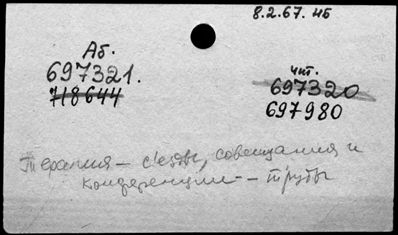 8.2.67. НБ
Аб.
697321.
718644
чит.
697320
697980
Терапия – съезды, совещания и
конференции – труды